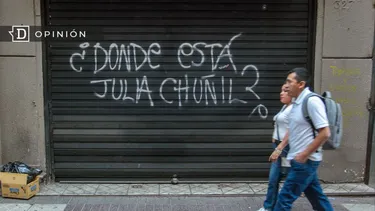 D OPINIÓN
¿DONDE ESTÁ
JULIA CHUÑIL?